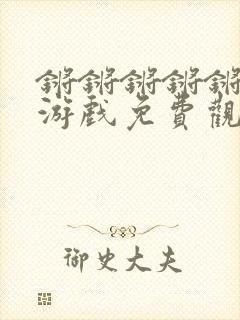 锵锵锵锵锵
游戏免費觀
御史大夫